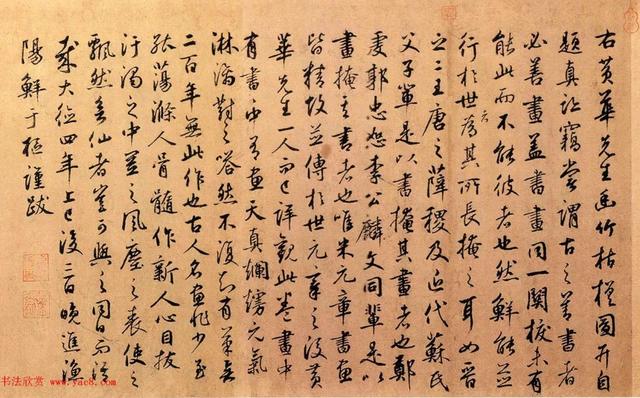 右黄華先生幽竹枯槎圖并自
題真跡竊嘗謂古之善書者
必善畫蓋書畫同一關捩未有
能此而不能彼者也然鮮能並
行於世為其所長掩之耳如晉
之二王唐之薛稷及近代蘇氏
父子輩是以書掩其畫者也鄭
虔郭忠恕李公麟文同輩是以
畫掩其書者也唯米元章書畫
皆精故並傳於世元章之後黄
華先生一人而已詳觀此卷畫中
有書書中有畫天真爛熳元氣
淋漓對之嗒然不復知有筆矣
二百年無此作也古人名畫非少至
能蕩滌人骨髓作新人心目拔
汙濁之中置之風塵之表使之
飄然若仙者豈可與之同日而語
哉大德四年上巳後三日晚進漁
陽鮮于樞謹跋
书法欣赏 www.yac8.com